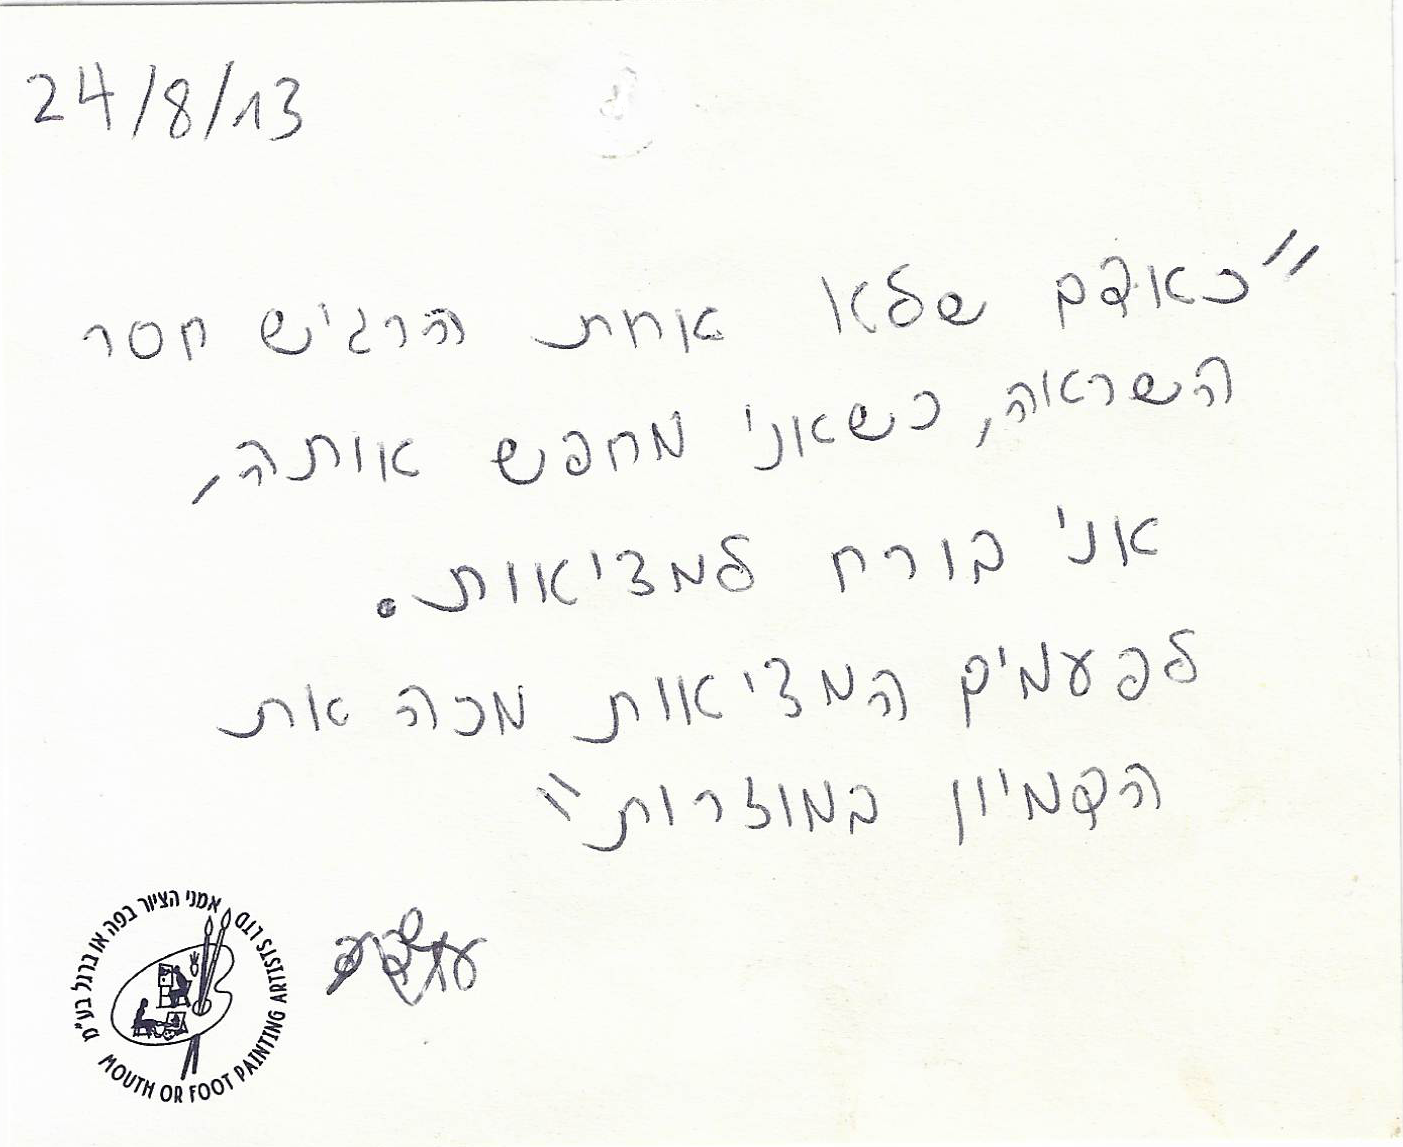 24/8/13
"כאדם שלא אחת הרגיש חסר
השראה, כשאני מחפש אותה,
אני בורח למציאות.
לפעמים המציאות מכה את
הדמיון במוזרות"
אמני הציור בפה או ברגל בע"מ
MOUTH OR FOOT PAINTING ARTISTS LTD